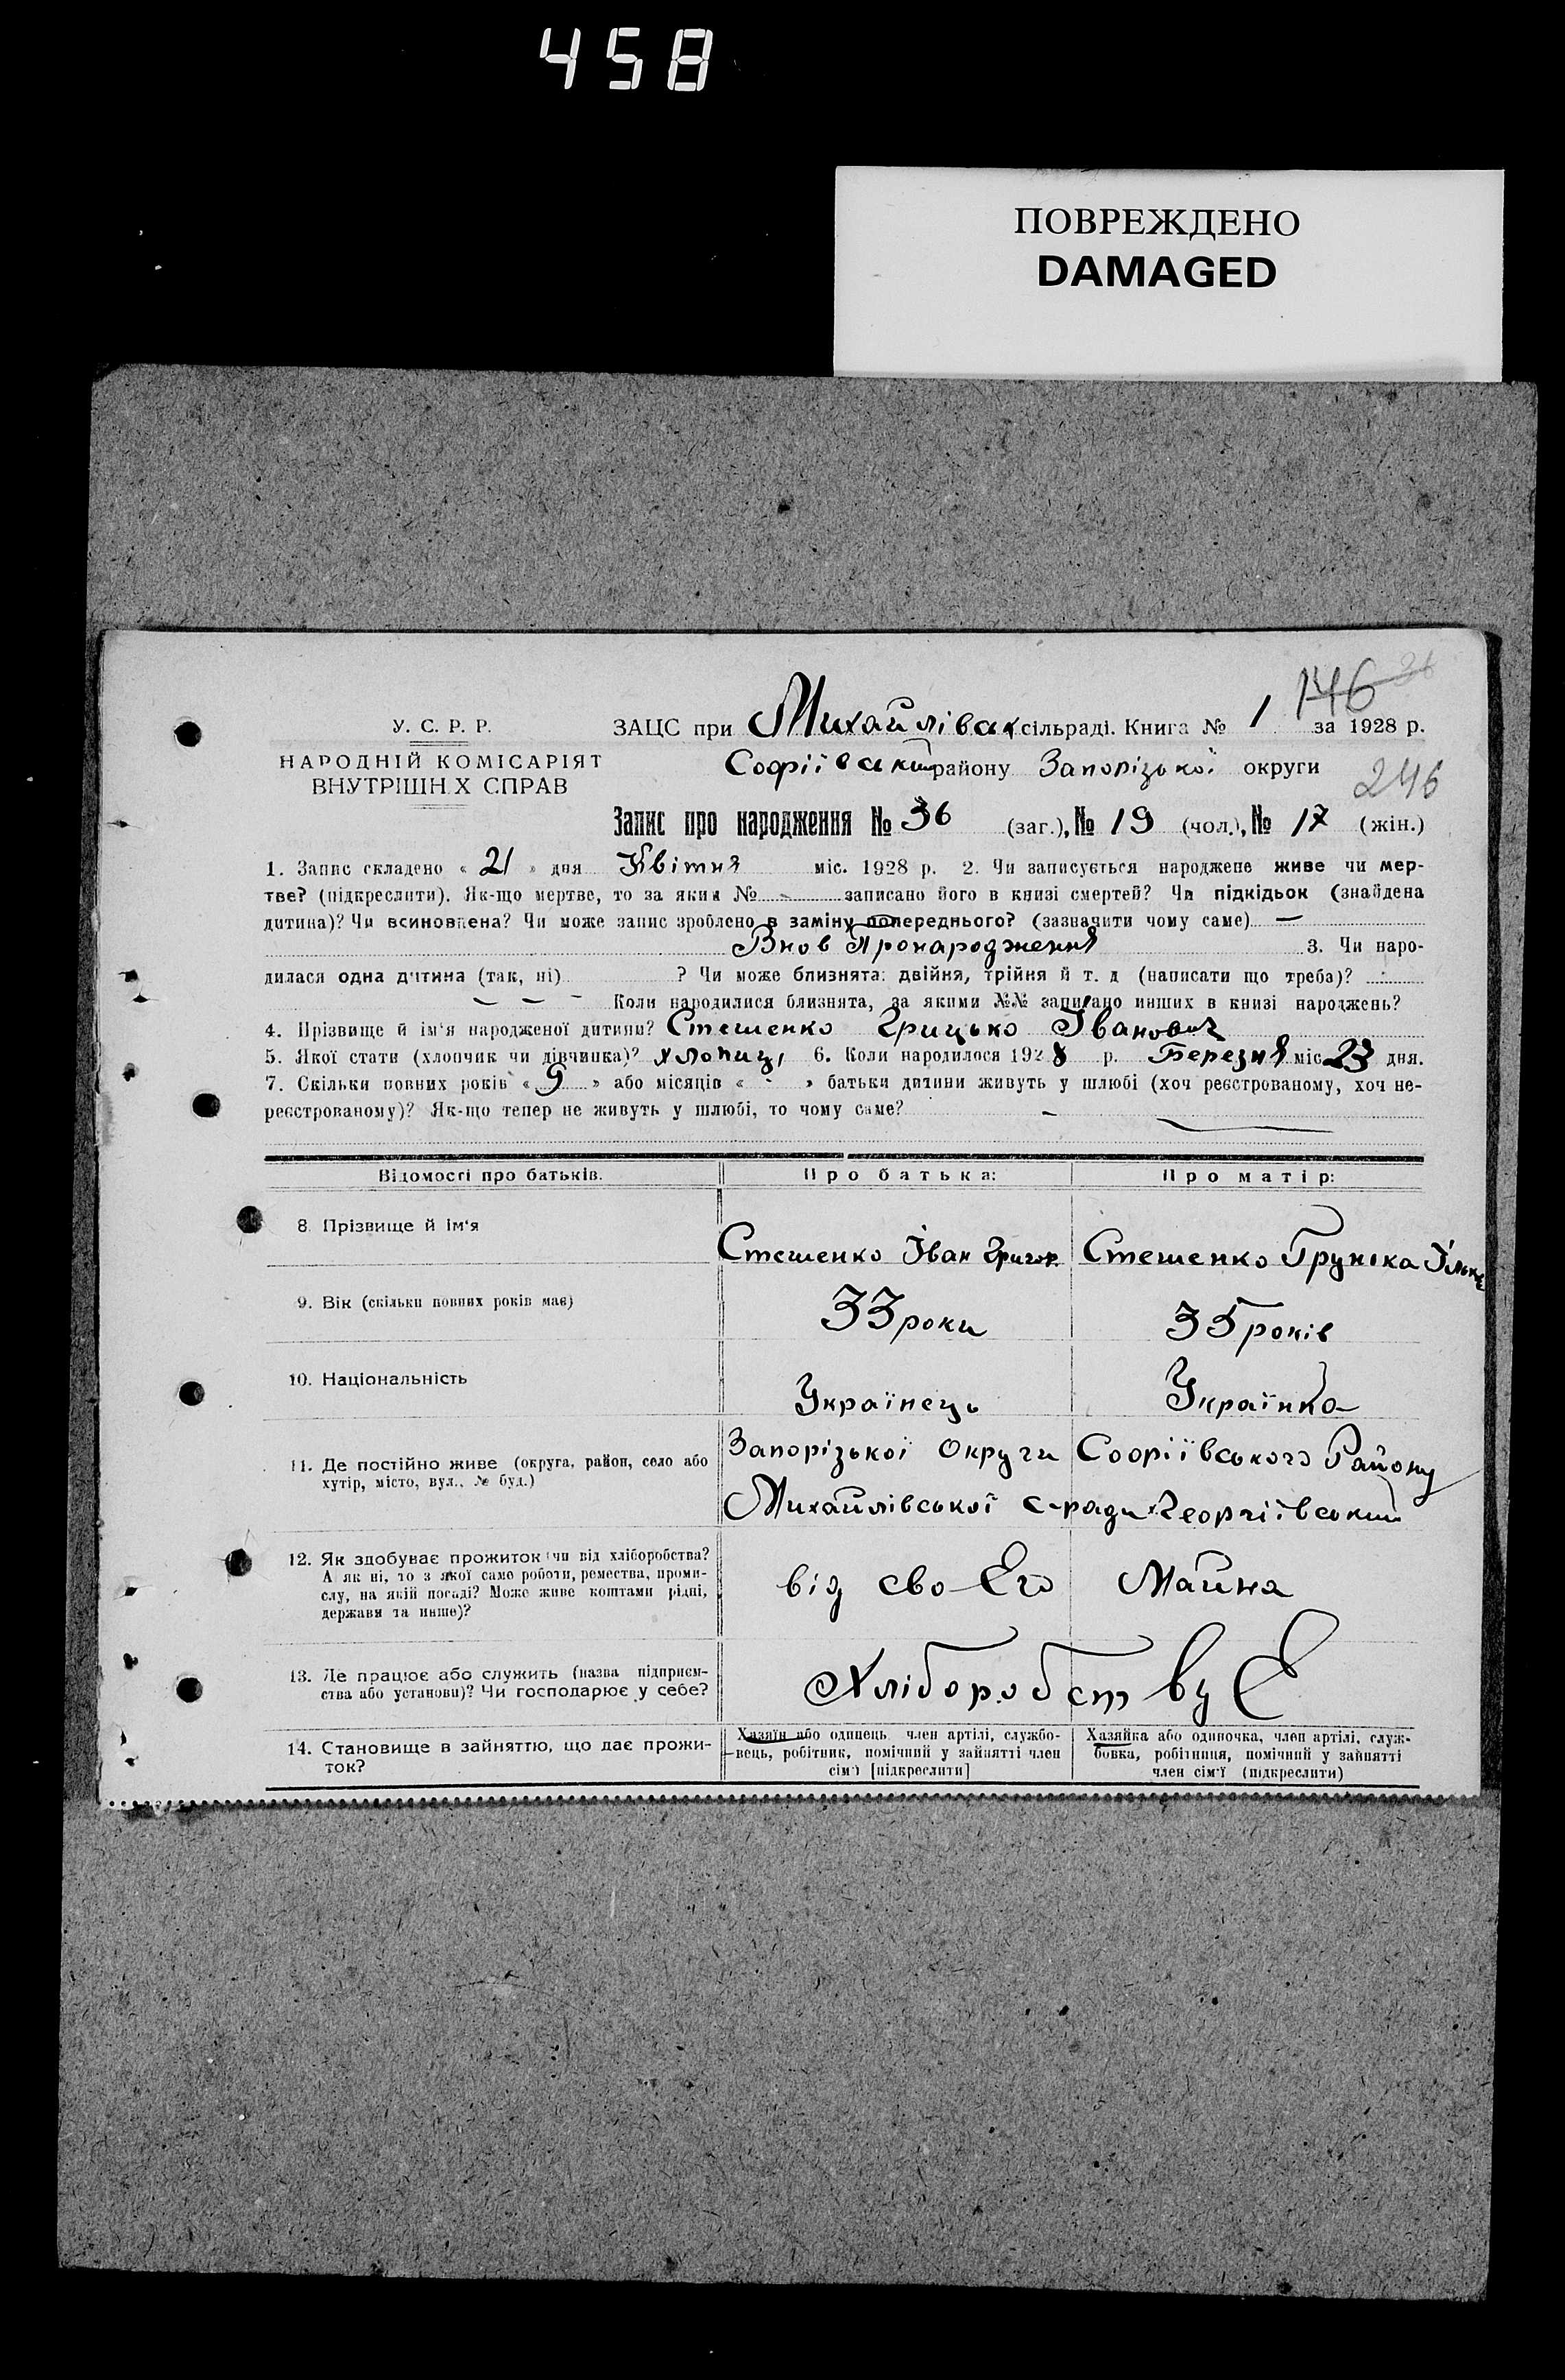 458
ПОВРЕЖДЕНО
DAMAGED
146 26
У. С. Р. Р.
НАРОДНІЙ КОМІСАРІЯТ
ВНУТРІШН Х СПРАВ
ЗАЦС при Михайлівск сільраді. Книга № 1 за 1928 р.
Софіївськ району Запорізької округи
246
Запис про народження № 36 (заг.), № 19 (чол.), № 17 (жін.)
1. Запис складено « 21 » дня Квітня міс. 1928 р. 2. Чи записується народжене живе чи мер-
тве? (підкреслити). Як-що мертве, то за яким № - записано його в книзі смертей? Чи підкідьок (знайдена
дитина)? Чи всиновлена? Чи може запис зроблено в заміну попереднього? (зазначити чому саме) —
Внов Пронародження 3. Чи наро-
дилася одна дитина (так, ні) ? Чи може близнята: двійня, трійня й т. д (написати що треба)?
— — - Коли народилися близнята, за якими №№ записано инших в книзі народжень?
4. Прізвище й ім'я народженої дитини? Стешенко Грицько Іванович
5. Якої стати (хлопчик чи дівчинка)? хлопиць 6. Коли народилося 1928 р. Березня міс 23 дня.
7. Скільки повних років « 9 » або місяців « - » батьки дитини живуть у шлюбі (хоч реєстрованому, хоч не-
реєстрованому)? Як-що тепер не живуть у шлюбі, то чому саме? -
Відомості про батьків. Про батька: Про матір:
8. Прізвище й ім'я
Стешенко Іван Григор. Стешенко Грунька Ільк
9. Вік (скільки повних років має)
33 роки 35 років
10. Національність
Українець Українка
11. Де постійно живе (округа, район, село або
хутір, місто, вул., № буд.)
Запорізької Округи Софіївського Району
Михайлівської с-ради х Георгіївський
12. Як здобуває прожиток чи від хліборобства?
А як ні, то з якої само роботи, ремества, проми-
слу, на якій посаді? Може живе коштами рідні,
держави та инше)?
від сво-Его Майна
13. Де працює або служить (назва підприєм-
ства або установи)? Чи господарює у себе?
Хліборобствує
14. Становище в зайняттю, що дає прожи-
ток?
Хазяїн або одинець член артілі, службо-
вець, робітник, помічний у зайнятті член
сім'ї [підкреслити]
Хазяйка або одиночка, член артілі, служ-
бовка, робітниця, помічний у зайнятті
член сім'ї (підкреслити)